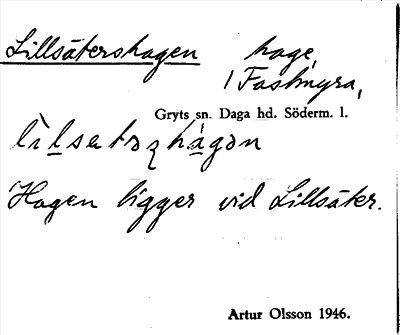 Lillsätershagen hage,
/ Fastmyra,
Gryts sn. Daga hd. Söderm. l.
Hagen ligger vid Lillsäter.
Artur Olsson 1946.